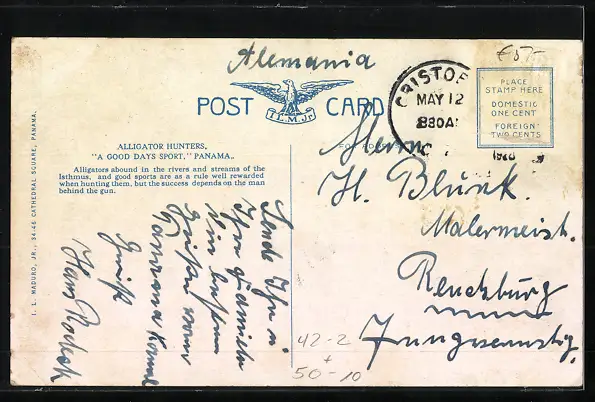 Alemania
€5,-
POST CARD
I.L.M.Jr.
CRISTOB
MAY 12
830A
PLACE
STAMP HERE
DOMESTIC
ONE CENT
FOREIGN
TWO CENTS
ALLIGATOR HUNTERS,
"A GOOD DAYS SPORT," PANAMA.
Alligators abound in the rivers and streams of the
Isthmus, and good sports are as a rule well rewarded
when hunting them, but the success depends on the man
behind the gun.
I. L. MADURO, JR., 34-46 CATHEDRAL SQUARE, PANAMA.
Herrn
H. Blunk.
Malermeist.
Rendsburg
Jungfernstieg.
Sende Ihn u.
Ihrer Familie
die besten
Grüße vom
Panama Kanal
Gruß
Hans
42-2
+
50-10